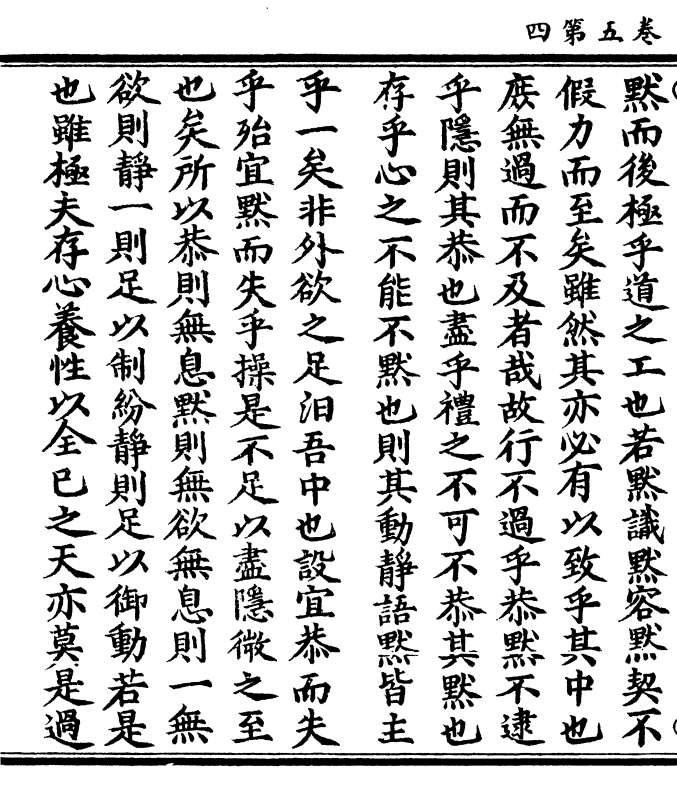 卷五第四
默而後極乎道之工也若默識默容默契不
假力而至矣雖然其亦必有以致乎其中也
庶無過而不及者哉故行不過乎恭默不逮
乎隱則其恭也盡乎禮之不可不恭其默也
存乎心之不能不默也則其動靜語默皆主
乎一矣非外欲之足汩吾中也設宜恭而失
乎殆宜默而失乎操是不足以盡隱微之至
也矣所以恭則無息默則無欲無息則一無
欲則靜一則足以制紛靜則足以御動若是
也雖極夫存心養性以全已之天亦莫是過